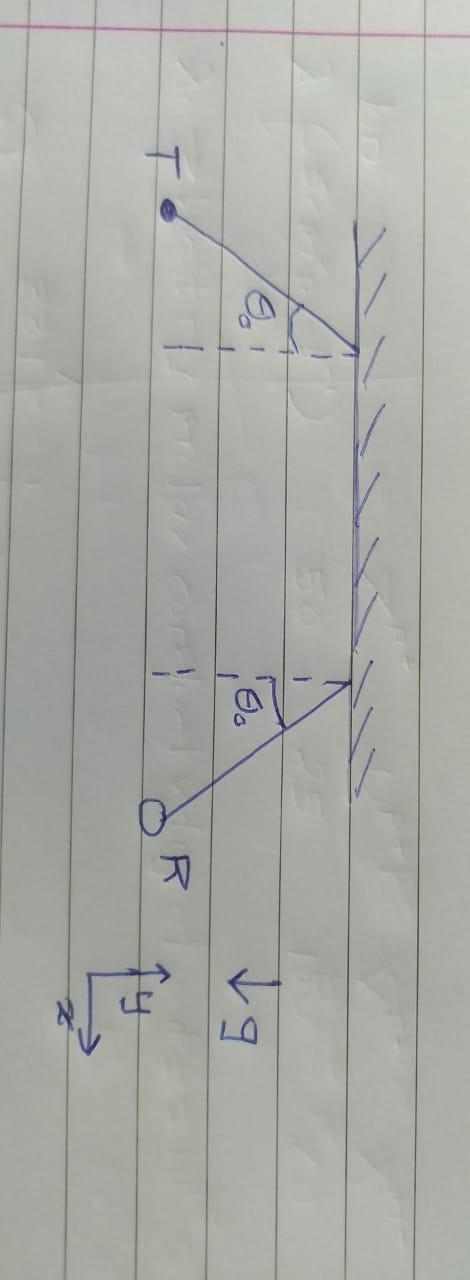 T
θ₀
θ₀
R
g
y
z